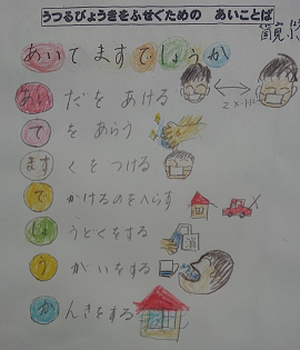 うつるびょうきをふせぐための　あいことば
あいてますでしょうか
あいだを あける
2メートル
てをあらう
ますくをつける
でかけるのをへらす
しょうどくをする
消
うがいをする
かんきをする